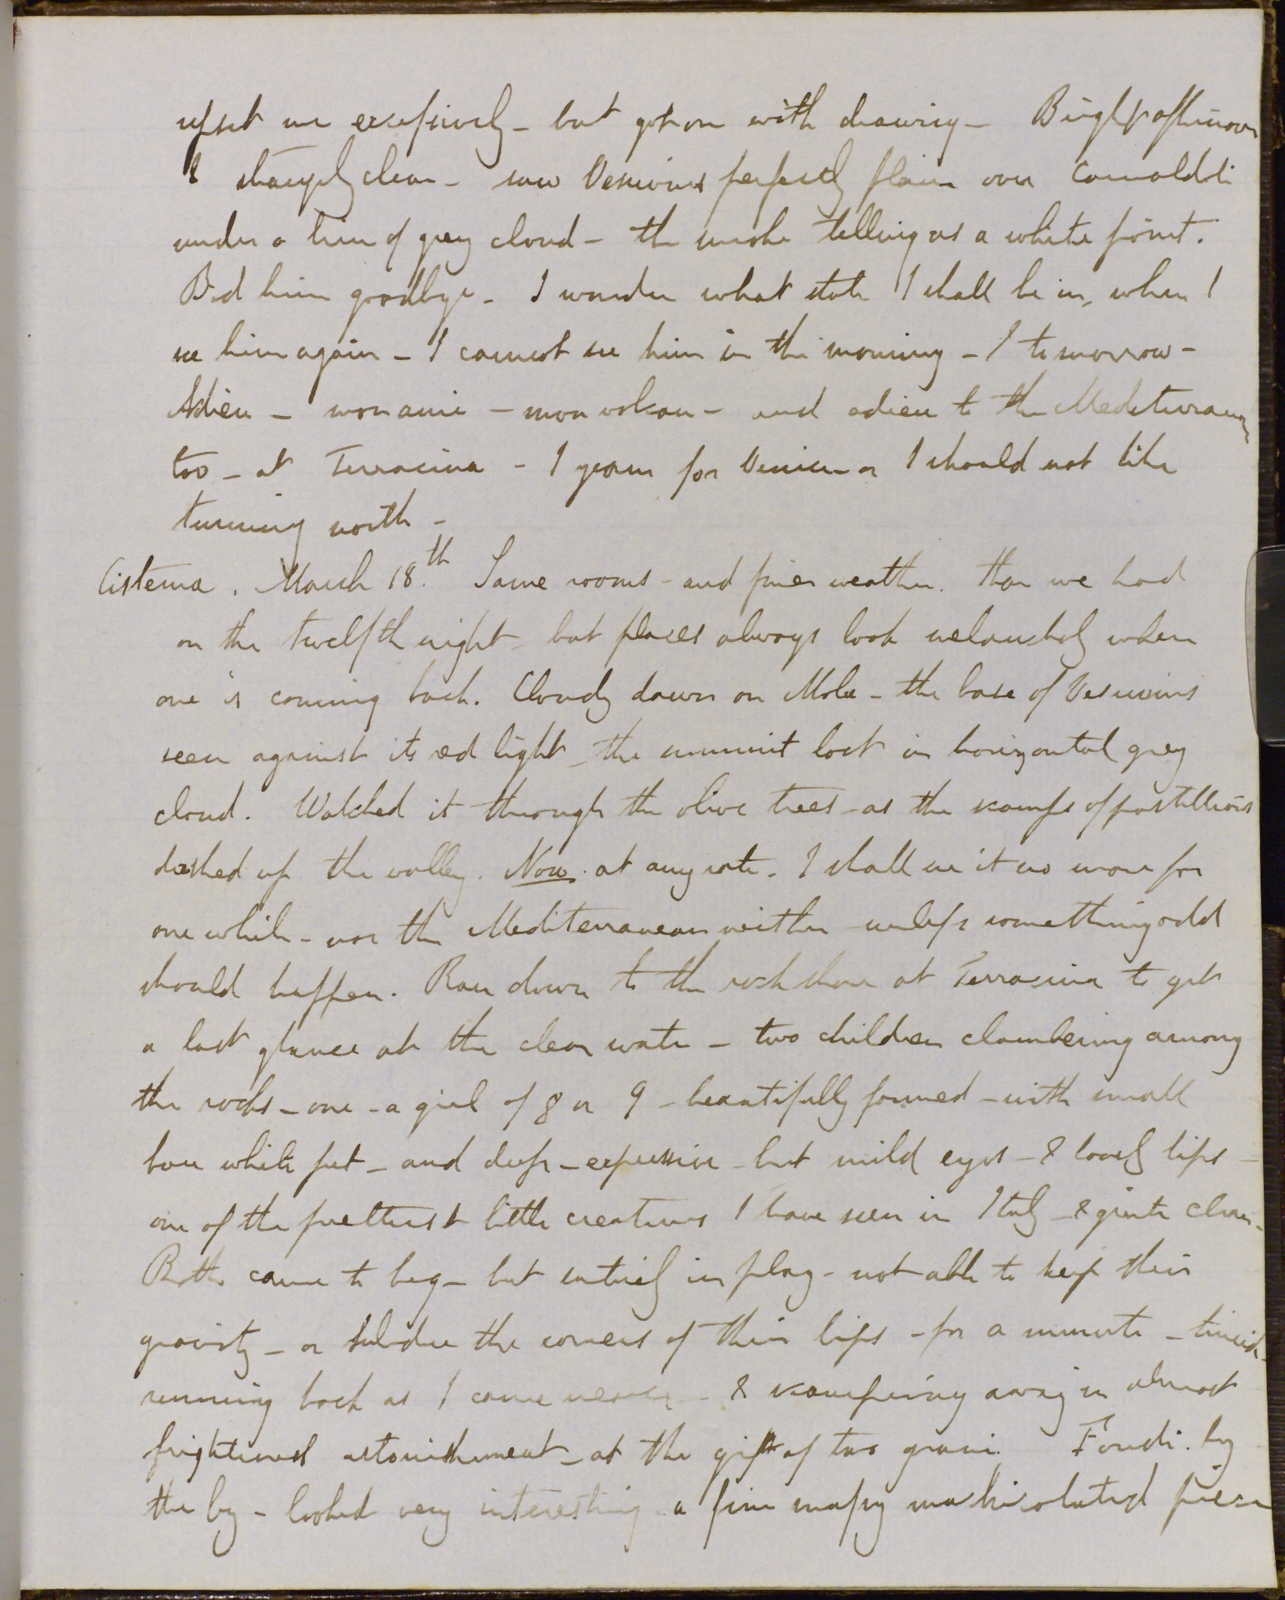 upset me excessively - but got on with drawing - Bright afternoon
& strangely clear - saw Vesuvius perfectly plain over Camaldoli
under a line of grey cloud - the smoke telling as a white point.
Bid him goodbye - I wonder what state I shall be in, when I
see him again - I cannot see him in the morning - tomorrow -
Adieu - mon ami - mon volcan - and adieu to the Mediterranean
too - at Terracina - I yearn for Venice or I should not like
turning north -
Cisterna. March 18th. Same rooms - and finer weather. than we had
on the twelfth night - but places always look melancholy when
one is coming back. Cloudy dawn on Mola - the base of Vesuvius
seen against its red light - the summit lost in horizontal grey
cloud. Watched it through the olive trees - as the scamps of postillions
dashed up the valley. Now. at any rate. I shall see it no more for
one while - nor the Mediterranean neither - unless something odd
should happen. Ran down to the rock shore at Terracina to get
a last glance at the clear water - two children clambering among
the rocks - one - a girl of 8 or 9 - beautifully formed - with small
bare white feet - and deep - expressive - but mild eyes - & lovely lips -
one of the prettiest little creatures I have seen in Italy - & quite clean -
Both came to beg - but entirely in play - not able to keep their
gravity - or subdue the corners of their lips - for a minute - timidly
running back as I came nearer - & scampering away in almost
frightened astonishment - at the gift of two grani. Fondi. by
the by - looked very interesting - a fine massy machicolated piece